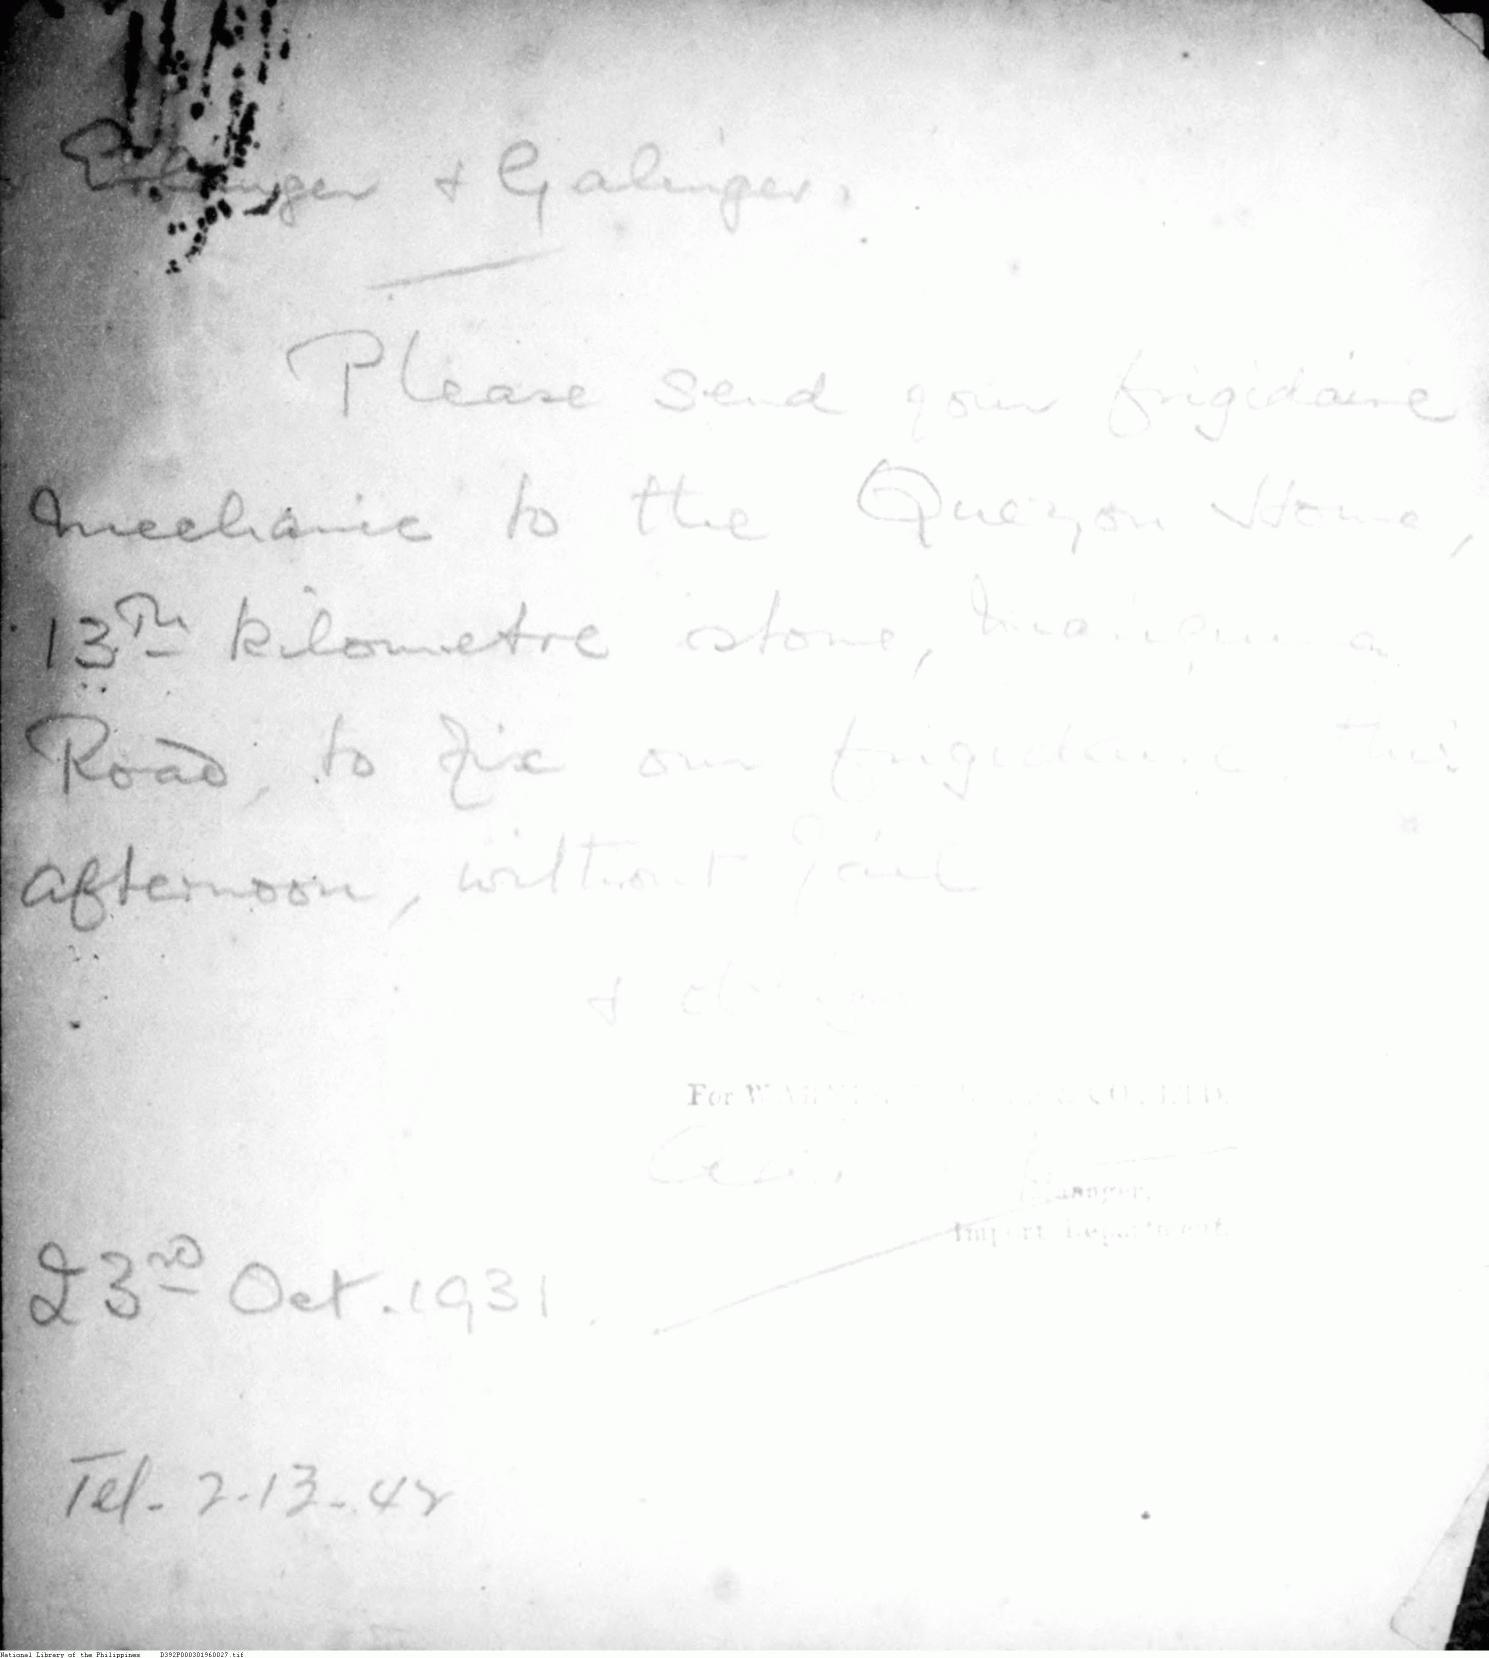 Erlanger & Galinger.
Please send your frigidaire
mechanic to the Quezon Home,
13th kilometre stone, Mariquina
Road, to fix our frigidaire this
afternoon, without fail
&
For CO., LTD.
Manager,
Import Department.
23rd Oct. 1931.
Tel. 2-13-42
National Library of the Philippines D392P000301960027.tif